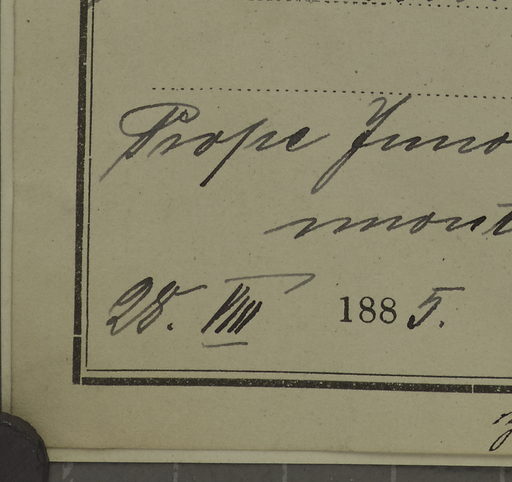 Prope Juno
mont
28. VIII 1885.